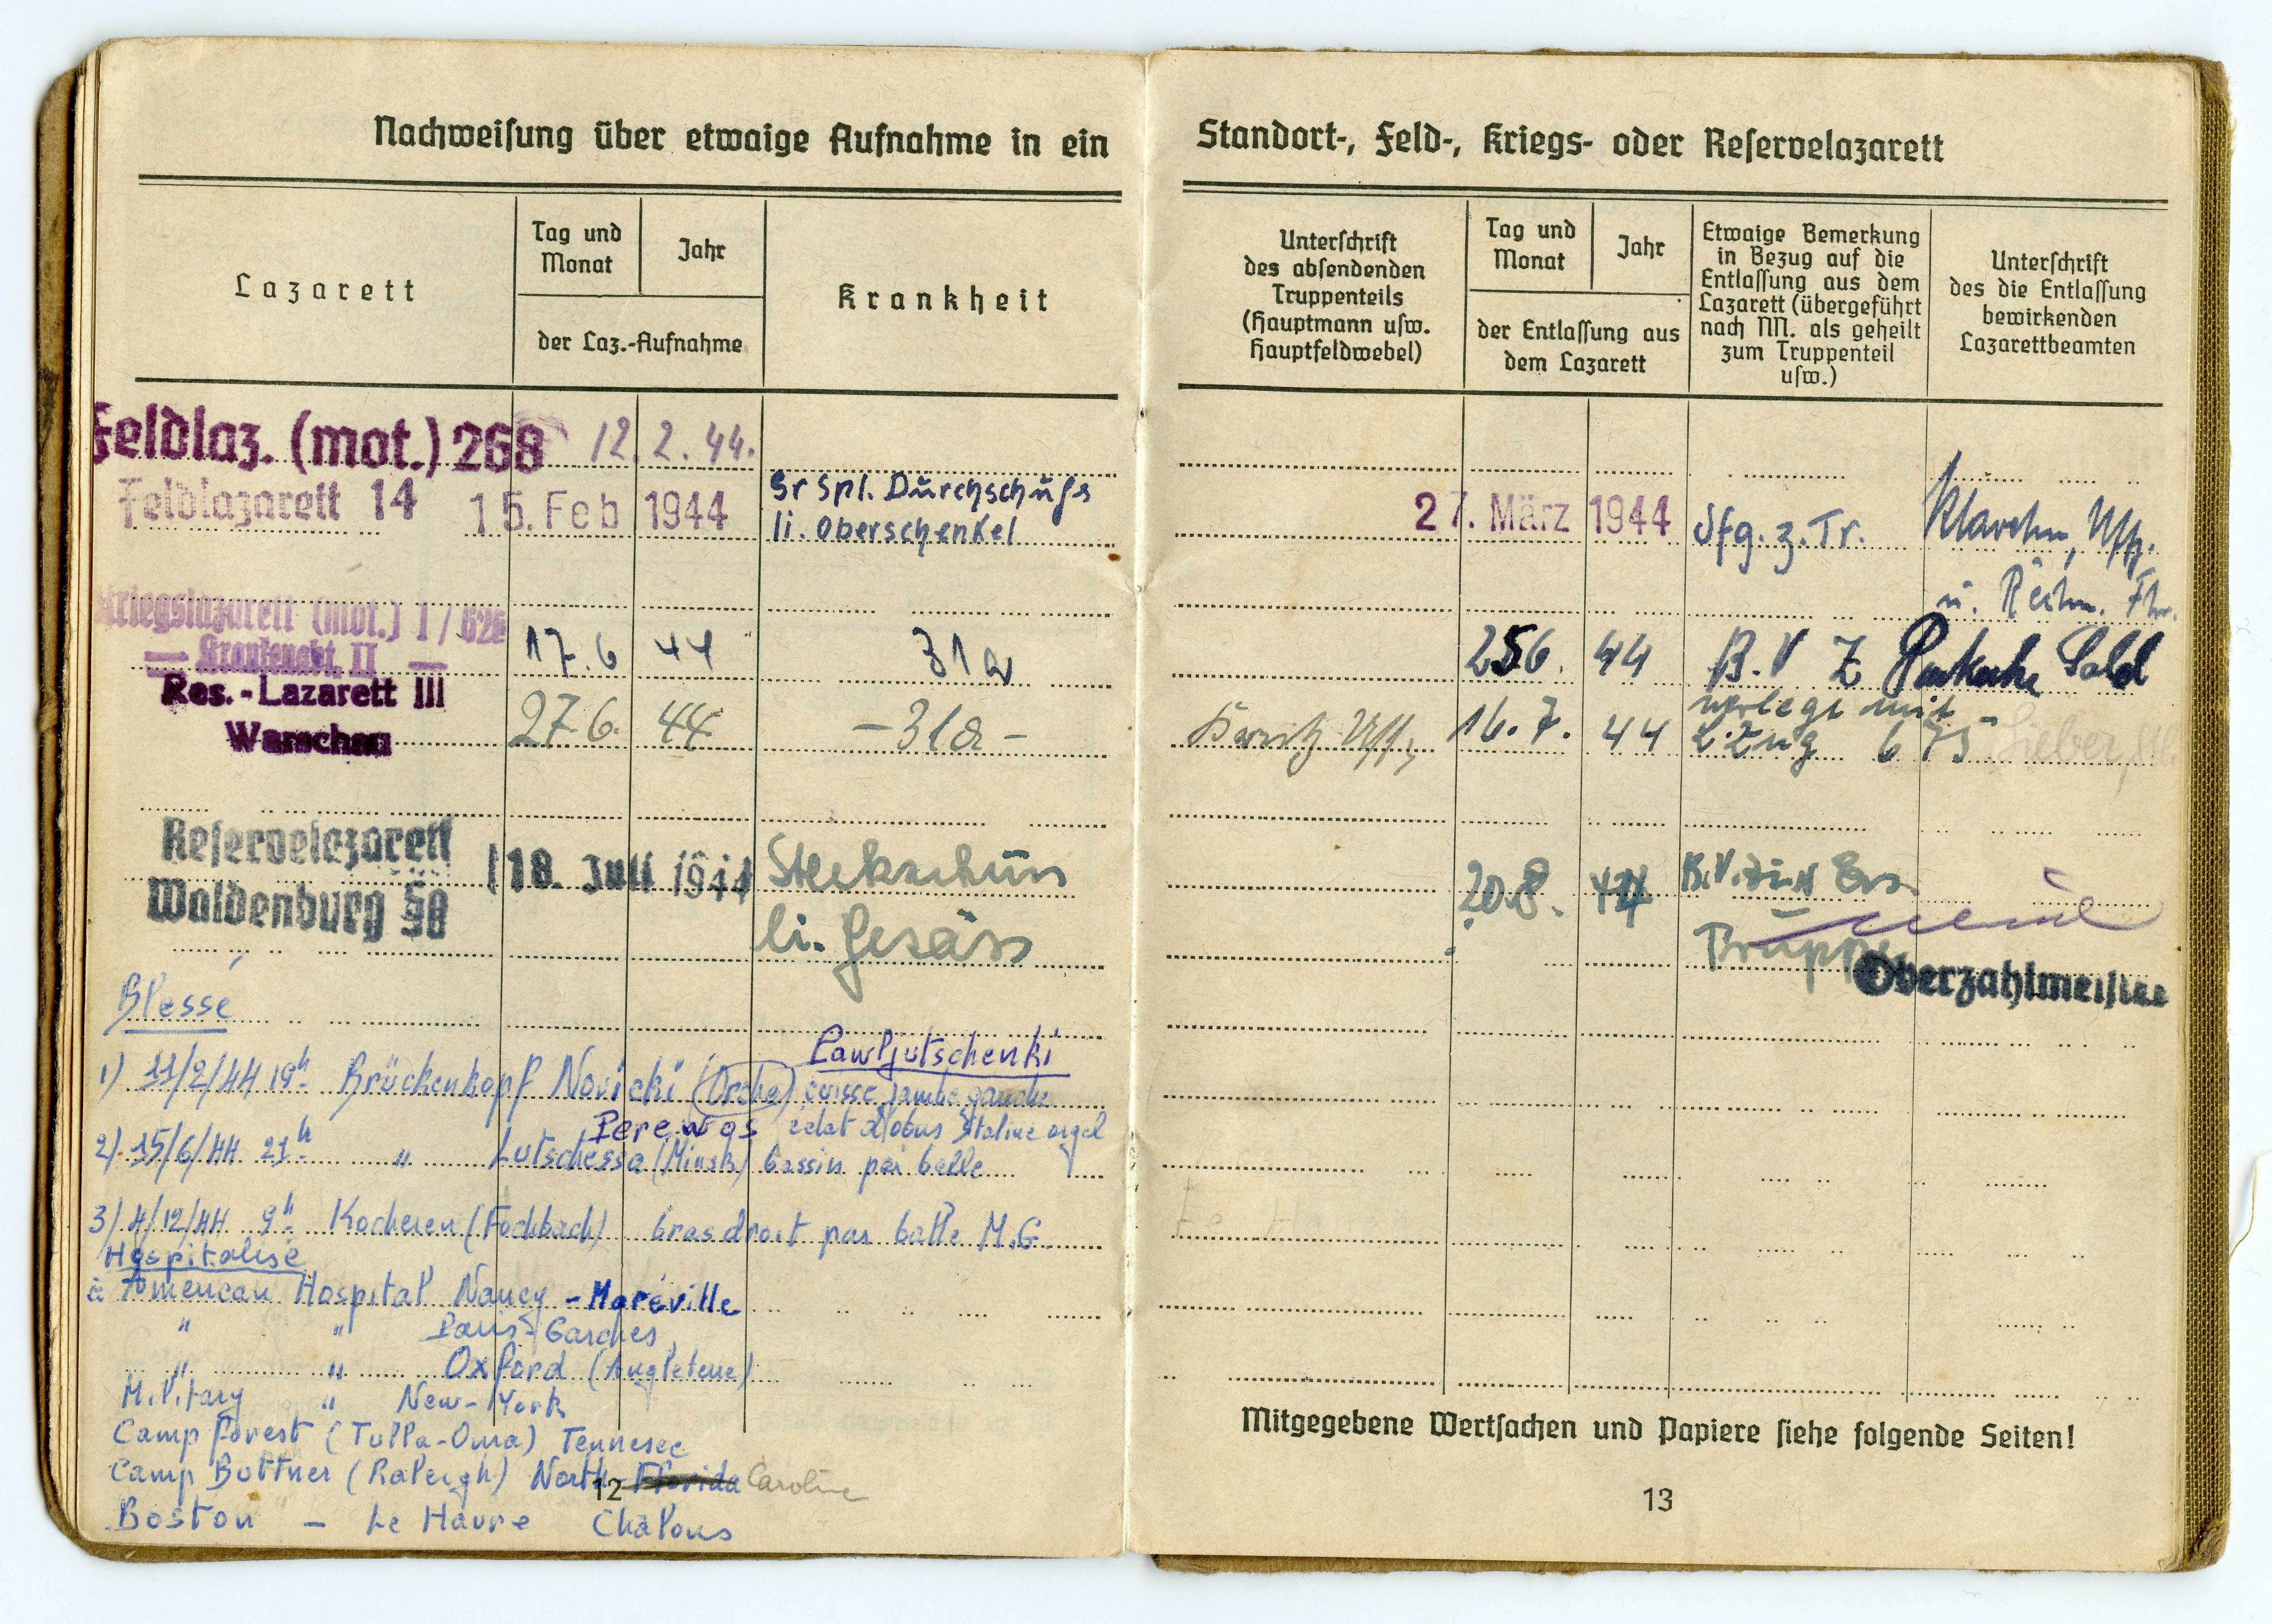 Nachweisung über etwaige Aufnahme in ein
Lazarett
Tag und
Monat
Jahr
der Laz.-Aufnahme
Krankheit
Feldlaz. (mot.) 268 12. 2. 44.
Feldlazarett 14 15. Feb 1944
Gr Spl. Durchschuss
li. Oberschenkel
Kriegslazarett (mot.) 1 / 626
Krankenabt. II
17. 6 44 31a
Res. - Lazarett III
Warschau
27 6. 44 - 31a -
Reservelazarett
Waldenburg
18. Juli 1944
Steckschuss
li. Gesäss
Blessé
Pawljutschenki
1) 11/2/44 19h Brückenkopf Novicki (Orscha) cuisse jambe gauche
Perewos éclat d'obus Staline orgel
2) 15/6/44 21h " Lutschessa (Minsk) bassin par balle
3) 4/12/44 9h Kocheren (Fochbach) bras droit par balle M.G.
Hospitalisé
à American Hospital Nancy - Maréville
" " Paris - Garches
" " Oxford (Angleterre)
Military " New-York
Camp forest (Tulla-Oma) Tennesee
Camp Buttner (Raleigh) North Florida Caroline
12
Boston - Le Havre Chalons
Standort-, Feld-, Kriegs- oder Reservelazarett
Unterschrift
des absendenden
Truppenteils
(Hauptmann usw.
Hauptfeldwebel)
Tag und
Monat
Jahr
der Entlassung aus
dem Lazarett
Etwaige Bemerkung
in Bezug auf die
Entlassung aus dem
Lazarett (übergeführt
nach NN. als geheilt
zum Truppenteil
usw.)
Unterschrift
des die Entlassung
bewirkenden
Lazarettbeamten
27. März 1944 dfg. z. Tr. Uffz.
u.
256. 44 B. V Z Sold
16. 7. 44 verlegt mit
L. Zug 675 Lieber,
20. 8. 44 K.V. zur Ers.
Truppe
Oberzahlmeister
Mitgegebene Wertsachen und Papiere siehe folgende Seiten!
13